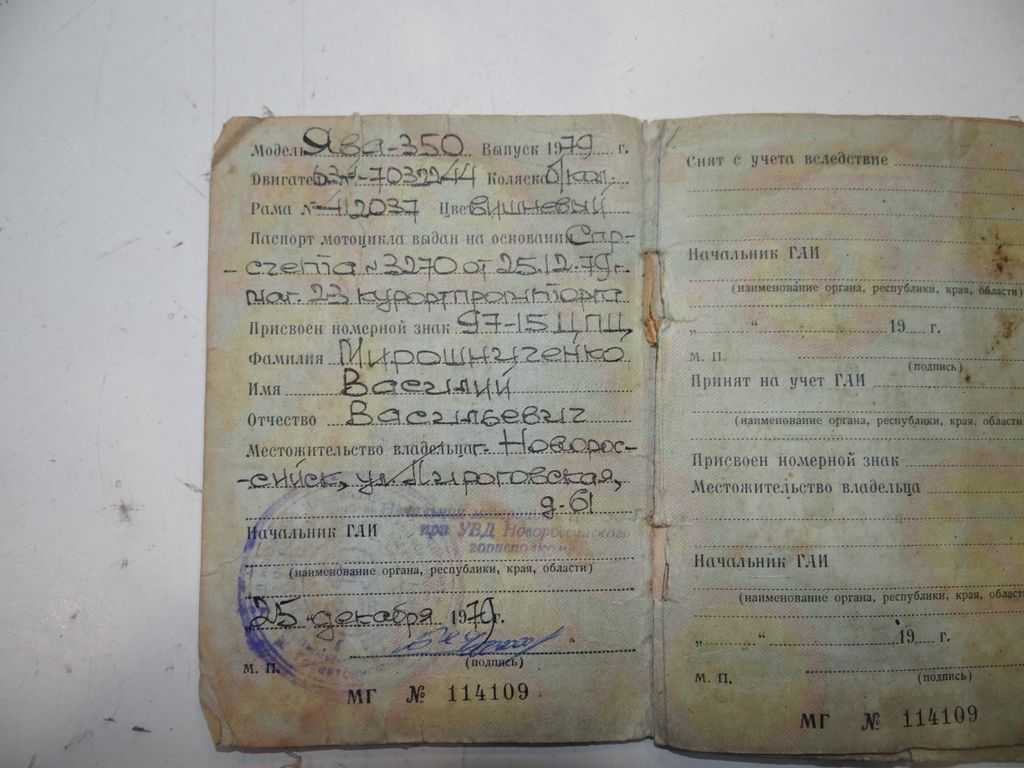 Модель Ява-350 Выпуск 1979 г.
Двигатель 634-7032244 Коляска б/кол.
Рама № 412037 Цвет вишневый
Паспорт мотоцикла выдан на основании Спр-
-счета № 3270 от 25.12.79 г.
маг. 23 курортпромторга
Присвоен номерной знак 97-15 ЦПЦ
Фамилия Мирошниченко
Имя Василий
Отчество Васильевич
Местожительство владельца г. Новорос-
-сийск, ул. Пироговская,
д. 61
Начальник
при УВД Новороссийского
горисполкома
Начальник ГАИ
(наименование органа, республики, края, области)
„25" декабря 1979 г.
(подпись)
М. П.
МГ № 114109
Снят с учета вследствие
Начальник ГАИ
(наименование органа, республики, края, области)
„ " 19 г.
М. П. (подпись)
Принят на учет ГАИ
(наименование органа, республики, края, области
Присвоен номерной знак
Местожительство владельца
Начальник ГАИ
(наименование органа, республики, края, област
„ " 19 г.
М. П. (подпись)
МГ № 114109